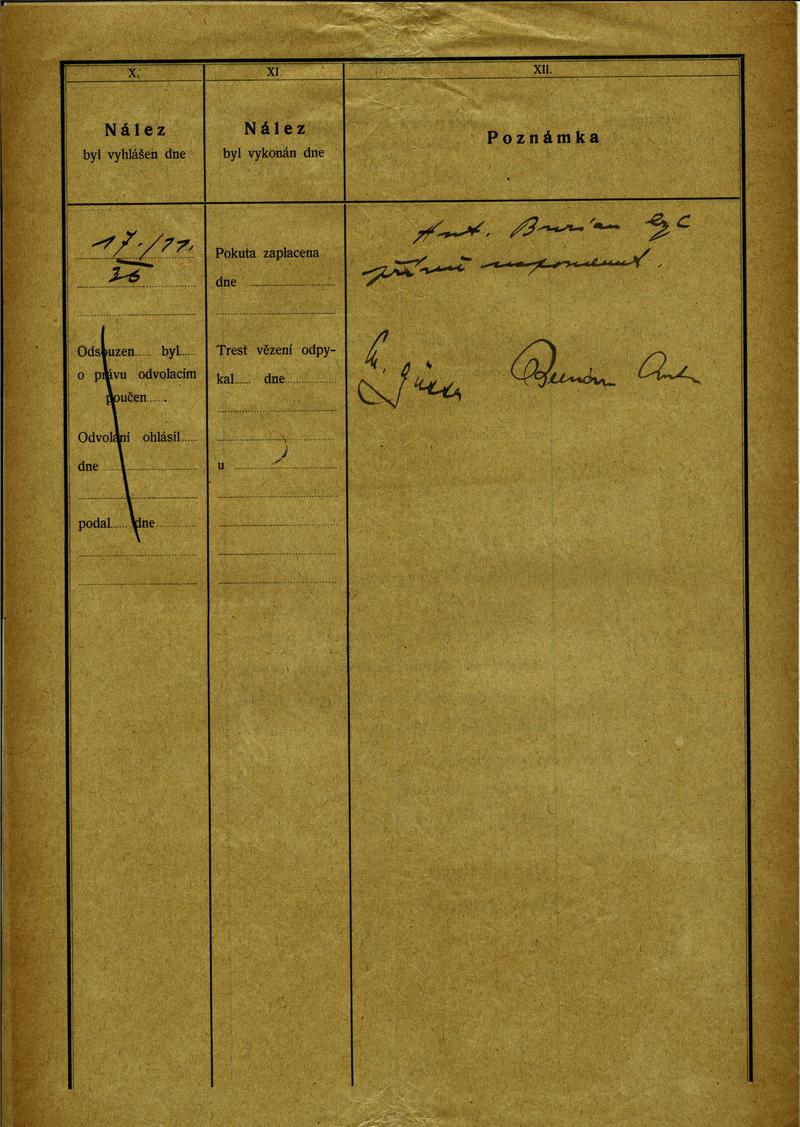 X.
Nález
byl vyhlášen dne
17./11.
26
Odsouzen...... byl......
o právu odvolacím
poučen.......
Odvolání ohlásil.....
dne
podal...... dne
XI.
Nález
byl vykonán dne
Pokuta zaplacena
dne
Trest vězení odpy-
kal...... dne
u
XII.
Poznámka
Ant. Burian
přísně napomenut.
Burián Ant.